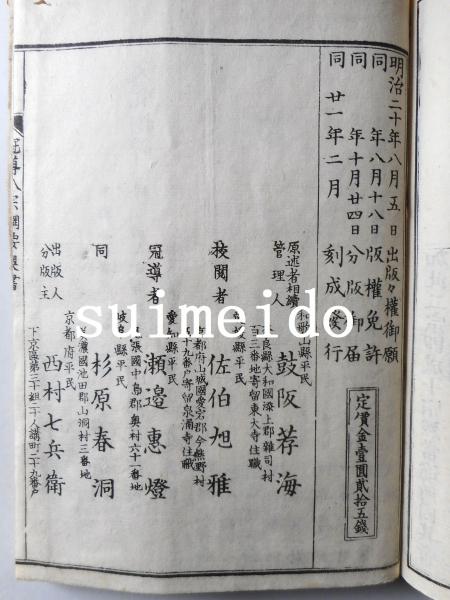 明治二十年八月五日出版々權御願
同年八月十八日版權免許
同年十月廿四日分版御届
同廿一年二月刻成發行
定價金壹圓貳拾五錢
原述者相續
管理人
和歌山縣平民
鼓阪荐海
奈良縣大和國添上郡雜司村
百三番地寄留東大寺住職
校閲者
縣平民
佐伯旭雅
京都府山城國愛宕郡今熊野村
五十九番戸寄留泉涌寺住職
冠導者
愛知縣平民
瀬邊惠燈
尾張國中島郡奥村六十一番地
同
岐阜縣平民
杉原春洞
美濃國池田郡山洞村三番地
出版人
分版主
京都府平民
西村七兵衛
下京區第三十組二十人講町二十九番戸
冠導八宗綱要
suimeido